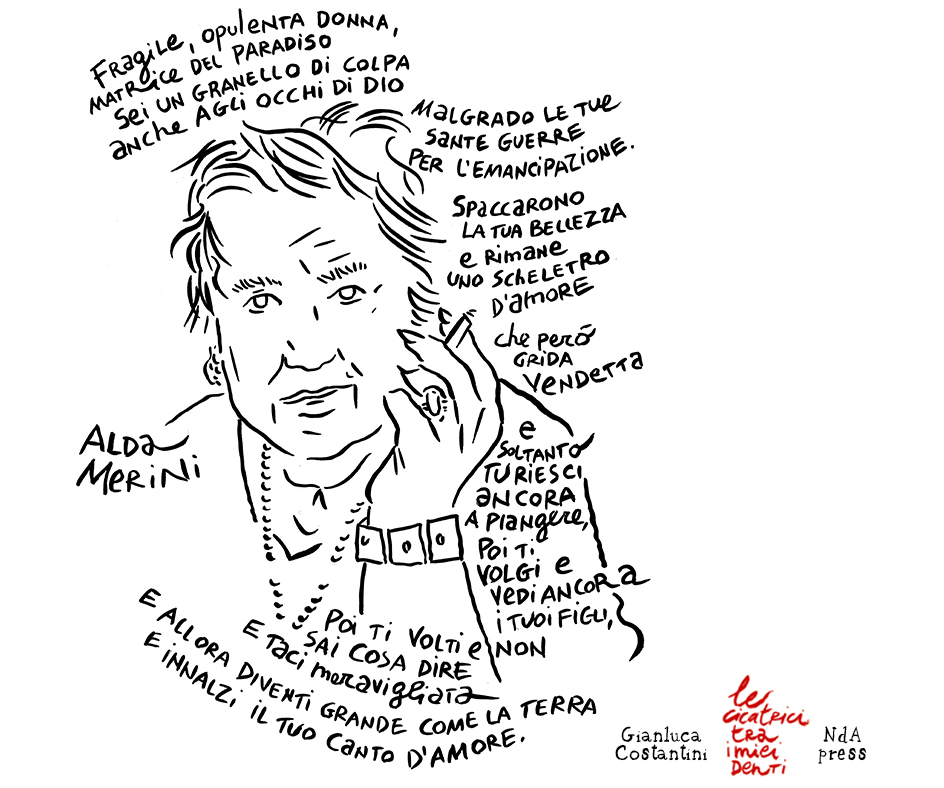 Fragile, opulenta donna,
matrice del paradiso
sei un granello di colpa
anche agli occhi di Dio
malgrado le tue
sante guerre
per l'emancipazione.
Spaccarono
la tua bellezza
e rimane
uno scheletro
d'amore
che però
grida
vendetta
e
soltanto
tu riesci
ancora
a piangere,
poi ti
volgi e
vedi ancora
i tuoi figli,
poi ti volti e non
sai cosa dire
e taci meravigliata
e allora diventi grande come la terra
e innalzi il tuo canto d'amore.
Alda
Merini
Gianluca
Costantini
le
cicatrici
tra
i miei
denti
NdA
press